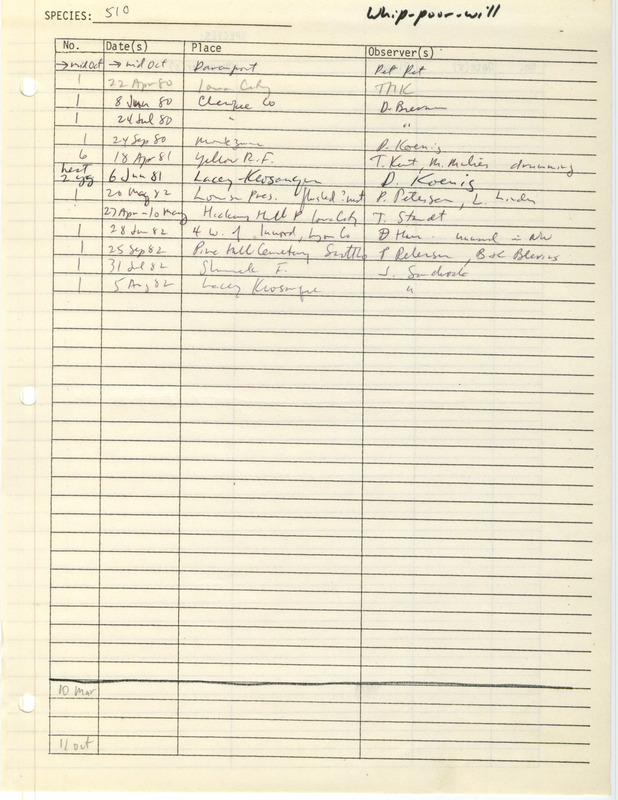 SPECIES: 510 Whip-poor-will
No. Date(s) Place Observer(s)
→mid Oct →mid Oct Davenport Pet Pet
1 22 Apr 80 Iowa City TMK
1 8 Jun 80 Clarke Co D.
1 24 Jul 80 " "
1 24 Sep 80 D. Koenig
6 18 Apr 81 Yellow R.F. T. Kent, M. drumming
nest 2 ygg 6 Jun 81 Lacey-Keosauqua D. Koenig
1 20 May 82 Louisa Pres. flushed P. Petersen, L.
27 Apr-10 May Hickory Hill P Iowa City T. Staudt
1 28 Jun 82 4 W. of Inwood, Lyon Co unusual in NW
1 25 Sep 82 Pine Hill Cemetery Scott Co P Petersen, B+K Blevins
1 31 Jul 82 F. J. Sandrock
1 5 Aug 82 Lacey Keosauqua "
10 Mar
11 Oct